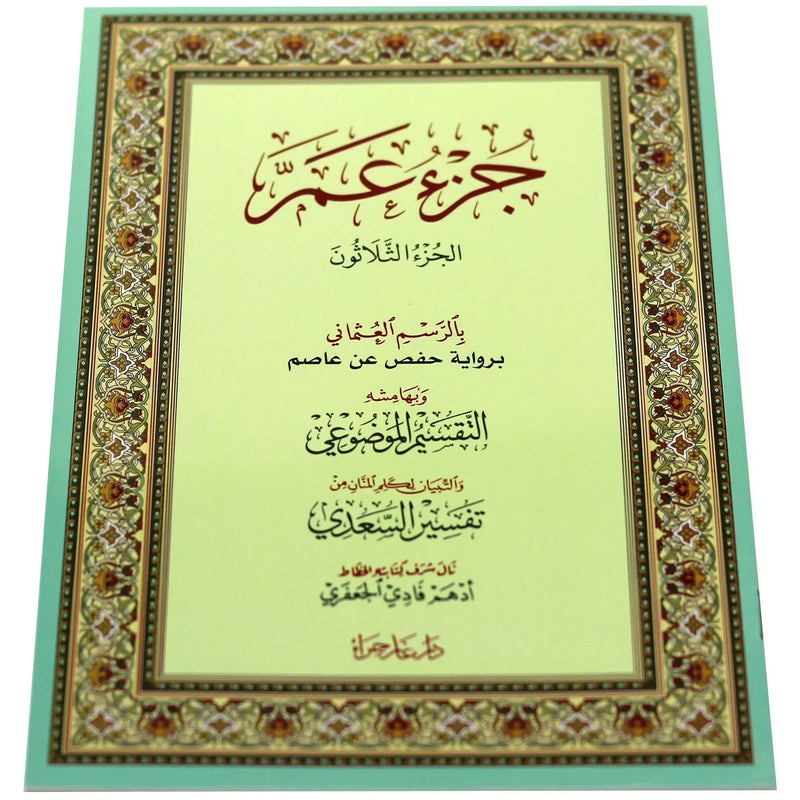 جُزْءُ عَمَّ
الجُزْءُ الثَّلَاثُونَ
بِالرَّسْمِ العُثْمَانِي
برواية حفص عن عاصم
وَبِهَامِشِهِ
التَّقْسِيمُ المَوْضُوعِي
وَالتِّبْيَان لِكَلِمِ المَنَّانِ مِنْ
تَفْسِيرِ السَّعْدِي
نَالَ شَرَفَ كِتَابَتِهِ الخَطَّاط
أَدْهَم فَادِي الجَعْفَرِي
دَار غَار حِرَاء